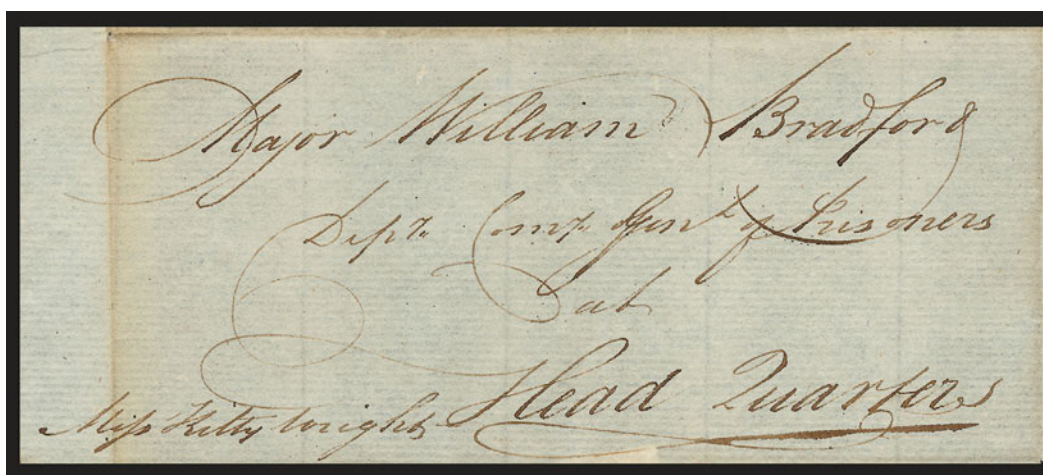 Major William Bradford
Depy. Comy. Genl. of Prisoners
at
Head Quarters
Miss Kitty Wright